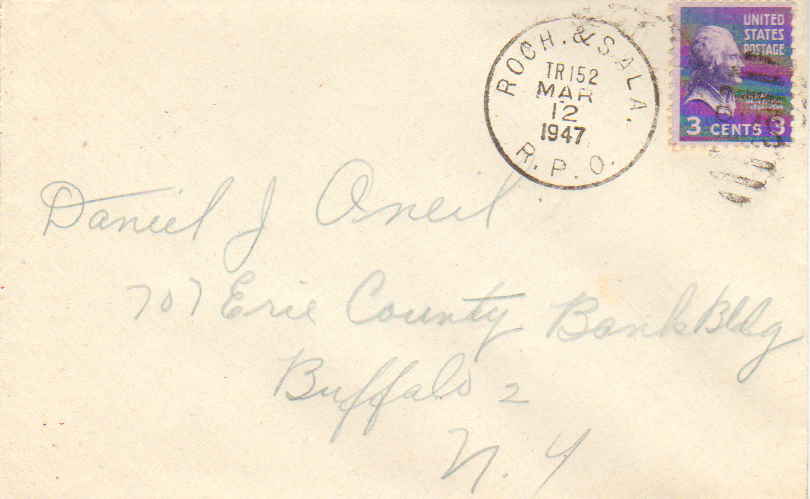 ROCH. & SALA.
TR152
MAR
12
1947
R.P.O.
UNITED
STATES
POSTAGE
3 CENTS 3
Daniel J Oneil
707 Erie County Bank Bldg
Buffalo 2
N.Y